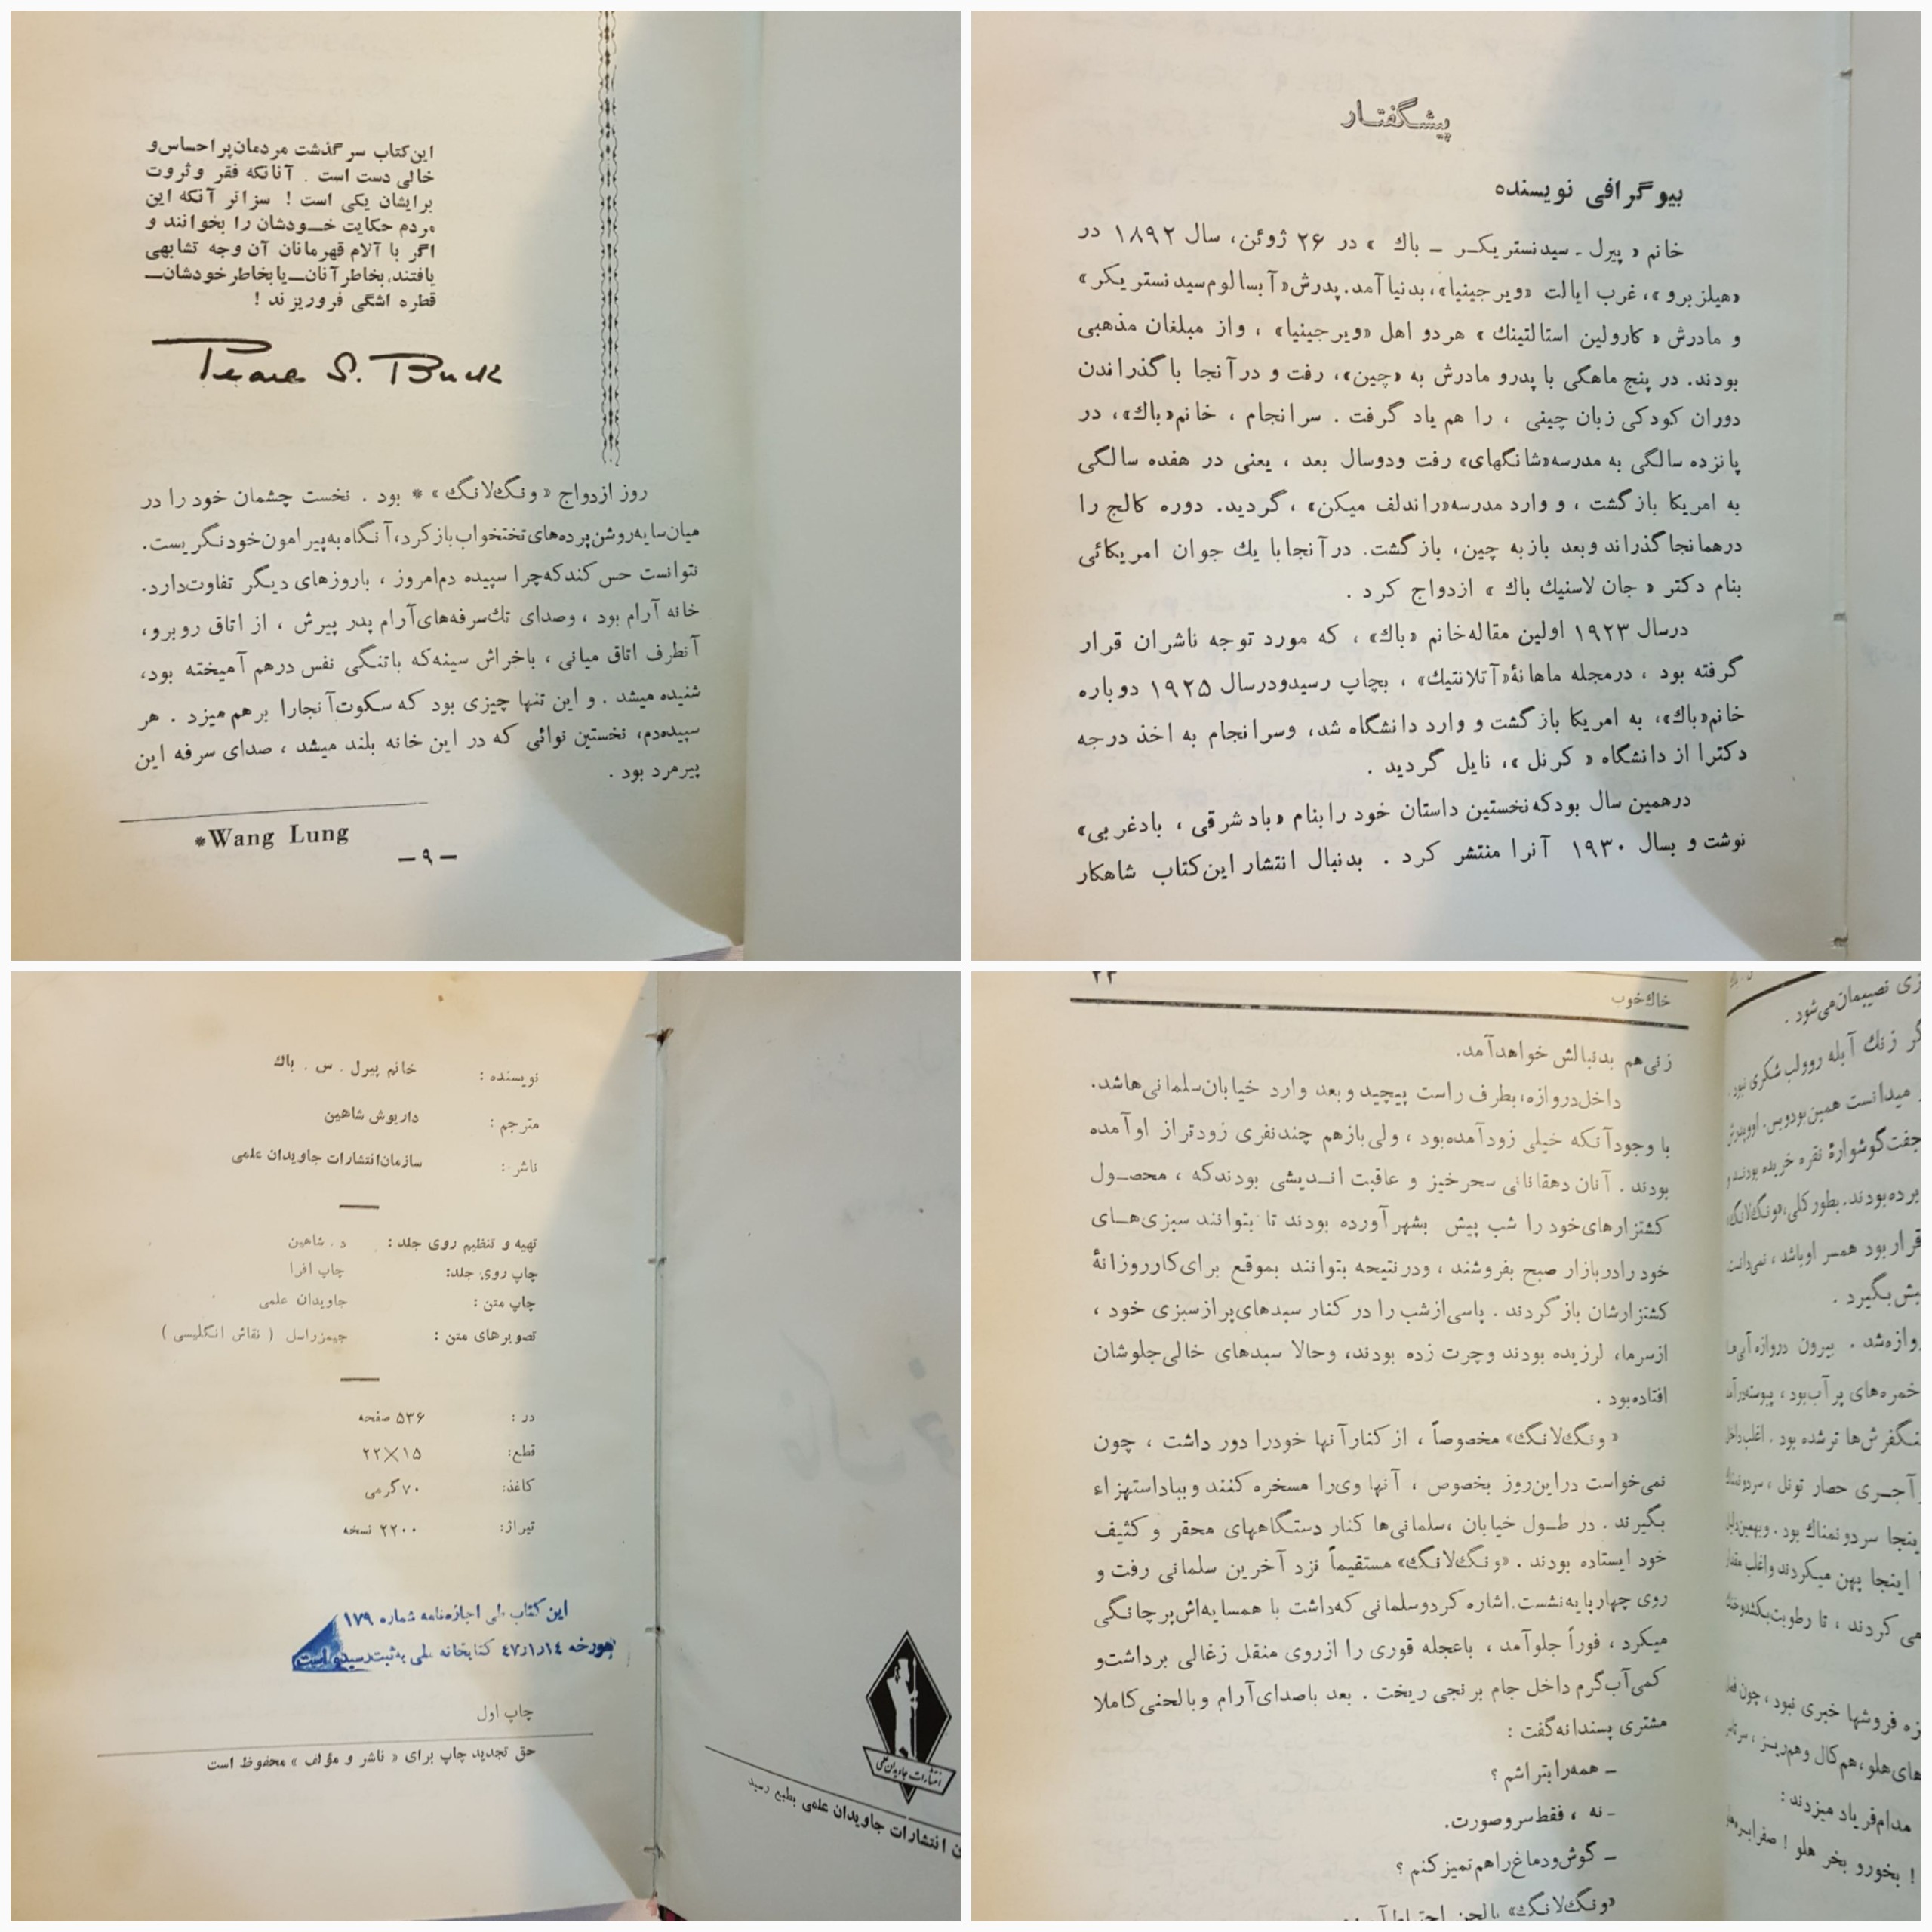 این‌کتاب سرگذشت مردمان‌پراحساس‌و
خالی دست است . آنانکه فقر وثروت
برایشان یکی است ! سزاتر آنکه این
مردم حکایت خــودشان را بخوانند و
اگر با آلام قهرمانان آن وجه تشابهی
یافتند، بخاطر آنان ــ یا بخاطر خودشان ــ
قطره اشگی فروریزند !
Pearl S. Buck
روز ازدواج « ونگ‌لانگ » * بود . نخست چشمان خود را در
میان‌سایه‌روشن‌پرده‌های‌تختخواب‌بازکرد، آنگاه به‌پیرامون‌خودنگریست.
نتوانست حس‌کندکه‌چرا سپیده دم‌امروز ، باروزهای دیگر تفاوت‌دارد.
خانه آرام بود ، وصدای تك‌سرفه‌های‌آرام پدر پیرش ، از اتاق روبرو،
آنطرف اتاق میانی ، باخراش سینه‌که باتنگی نفس درهم آمیخته بود،
شنیده میشد . و این تنها چیزی بود که سکوت‌آنجارا برهم میزد . هر
سپیده‌دم، نخستین نوائی که در این خانه بلند میشد ، صدای سرفه این
پیرمرد بود .
*Wang Lung
ــ ۹ ــ
پیشگفتـار
بیوگرافی نویسنده
خانم « پیرل ـ سیدنستریکـر ــ باك » در ۲۶ ژوئن، سال ۱۸۹۲ در
«هیلزبرو»، غرب ایالت «ویرجینیا»، بدنیاآمد. پدرش«آبسالوم‌سیدنستریکر»
و مادرش « کارولین استالتینك » هردو اهل «ویرجینیا» ، واز مبلغان مذهبی
بودند. در پنج ماهگی با پدرو مادرش به «چین»، رفت و درآنجا باگذراندن
دوران کودکی زبان چینی ، را هم یاد گرفت . سرانجام ، خانم«باك»، در
پانزده سالگی به مدرسه«شانگهای» رفت ودوسال بعد ، یعنی در هفده سالگی
به امریکا بازگشت ، و وارد مدرسه«راندلف میکن» ، گردید. دوره کالج را
درهمانجاگذراند وبعد بازبه چین، بازگشت. درآنجابا یك جوان امریکائی
بنام دکتر « جان لاسنیك باك » ازدواج کرد .
درسال ۱۹۲۳ اولین مقاله‌خانم «باك» ، که مورد توجه ناشران قرار
گرفته بود ، درمجله ماهانهٔ«آتلانتیك» ، بچاپ رسیدودرسال ۱۹۲۵ دوباره
خانم«باك»، به امریکا بازگشت و وارد دانشگاه شد، وسرانجام به اخذ درجه
دکترا از دانشگاه « کرنل »، نایل گردید .
درهمین سال بودکه‌نخستین داستان خود رابنام «باد شرقی ، بادغربی»
نوشت و بسال ۱۹۳۰ آنرا منتشر کرد . بدنبال انتشار این‌کتاب شاهکار
نویسنده : خانم پیرل . س . باك
مترجم : داریوش شاهین
ناشر : سازمان‌انتشارات جاویدان علمی
تهیه و تنظیم روی جلد : د . شاهین
چاپ روی جلد: چاپ افرا
چاپ متن : جاویدان علمی
تصویرهای متن : جیمزراسل ( نقاش انگلیسی )
در : ۵۳۶ صفحه
قطع: ۱۵×۲۲
کاغذ: ۷۰گرمی
تیراژ: ۲۲۰۰ نسخه
این کتاب طی اجازه‌نامه شماره ۱۷۹
مورخه ۴۷ر۱ر۱۴ کتابخانه ملی به‌ثبت‌رسیده است
چاپ اول
حق تجدید چاپ برای « ناشر و مؤلف » محفوظ است
انتشارات جاویدان علمی
انتشارات جاویدان علمی بطبع رسید
۲۲
خاك‌خوب
زنی‌هم بدنبالش خواهدآمد.
داخل‌دروازه، بطرف راست پیچید وبعد وارد خیابان‌سلمانی‌هاشد.
با وجودآنکه خیلی زودآمده‌بود ، ولی‌بازهم چندنفری زودتراز اوآمده
بودند . آنان دهقانانی سحرخیز و عاقبت انـدیشی بودندکه ، محصـول
کشتزارهای‌خود را شب پیش بشهرآورده بودند تا بتوانند سبزی‌هـای
خود رادربازار صبح بفروشند ، ودرنتیجه بتوانند بموقع برای‌کارروزانهٔ
کشتزارشان بازگردند . پاسی‌ازشب را در کنار سبدهای‌پرازسبزی خود ،
ازسرما، لرزیده بودند وچرت زده بودند، وحالا سبدهای خالی‌جلوشان
افتاده‌بود .
«ونگ‌لانگ» مخصوصاً ، از کنارآنها خودرا دور داشت ، چون
نمی‌خواست دراین‌روز بخصوص ، آنها وی‌را مسخره کنند وبباداستهزاء
بگیرند . در طـول خیابان ،سلمانی‌ها کنار دستگاههای محقر و کثیف
خود ایستاده بودند . «ونگ‌لانگ» مستقیماً نزد آخرین سلمانی رفت و
روی چهارپایه‌نشست. اشاره کردوسلمانی که‌داشت با همسایه‌اش‌پرچانگی
میکرد ، فوراً جلوآمد ، باعجله قوری را ازروی منقل زغالی برداشت‌و
کمی‌آب‌گرم داخل جام برنجی ریخت . بعد باصدای‌آرام وبالحنی‌کاملا
مشتری پسندانه‌گفت :
ــ همه‌رابتراشم ؟
ـ نه ، فقط‌سروصورت.
ــ گوش‌ودماغ‌راهم‌تمیزکنم ؟
نصیبمان‌می‌شود .
زنك آبله روولب شکری نبود
میدانست همین‌بودوبس.
جفت‌گوشوارهٔ نقره خریده بودنـدو
برده‌بودند. بطورکلی،«ونگ‌لانگ»
قراربود همسر اوباشد ، نمی‌دانست
بگیرد .
بیرون دروازه
خمره‌های پرآب‌بود ،
ترشده بود .
آجـری حصار تونل ،
اینجا سردونمناك بود .
اینجا پهن میکردند واغلب
می کردند ، تا رطوبت
فروشها خبری نبود ،
های‌هلو،هم‌کال وهم‌ریـز ،
مدام‌فریاد میزدند :
! بخورو بخر هلو !